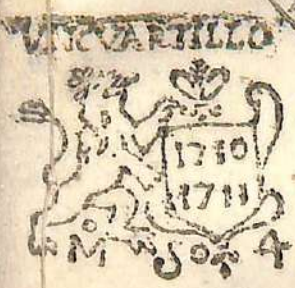 VN CVARTILLO
1710
1711